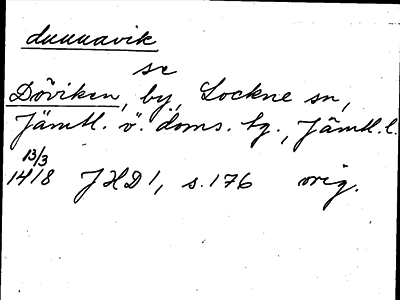 duuuavik
se
Döviken, by, Lockne sn,
Jämtl. ö. doms. tg., Jämtl. l.
13/3
1418 JHD 1, s. 176 orig.